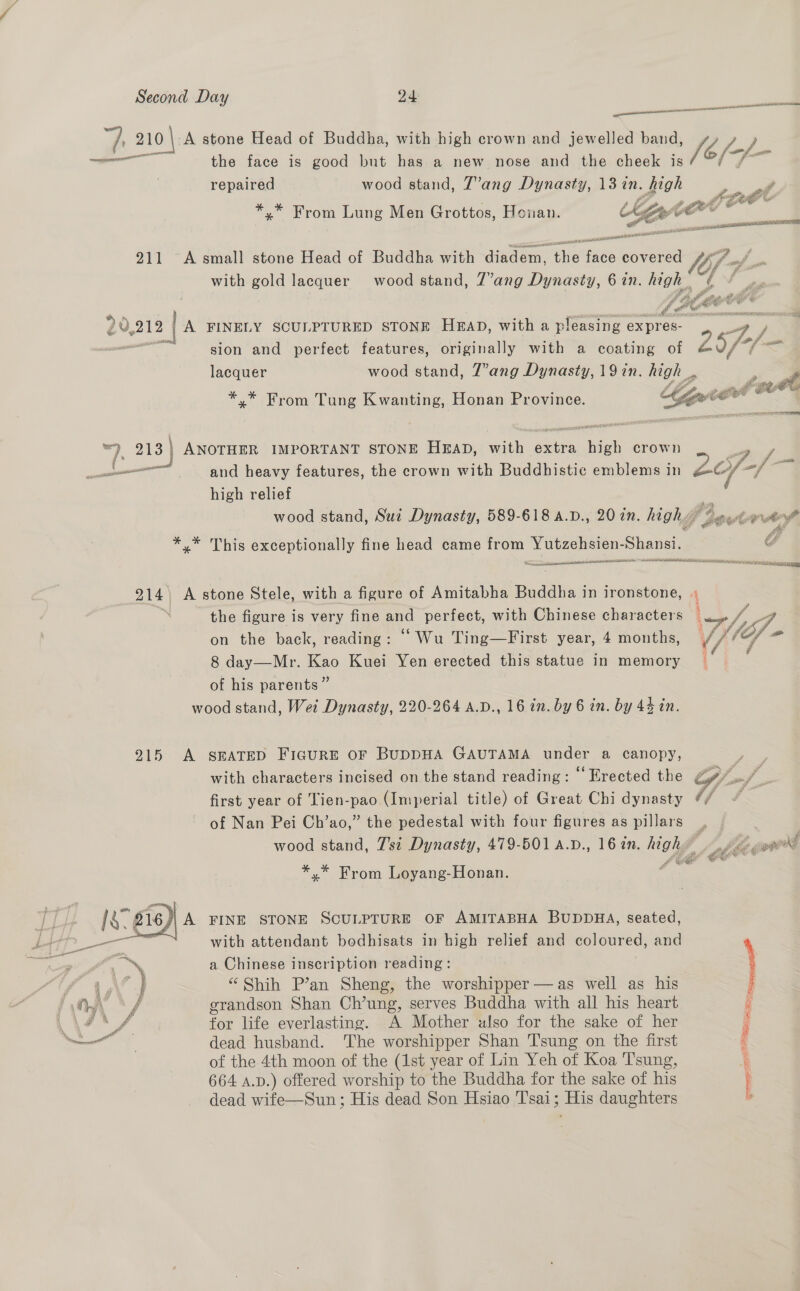 Second Day 24
7, 210 A stone Head of Buddha, with high crown and jewelled band,
the face is good but has a new nose and the cheek is
repaired wood stand, T’ang Dynasty, 13 in. high
*** From Lung Men Grottos, Honan.
211 A small stone Head of Buddha with diadem, the face covered
with gold lacquer wood stand, T’ang Dynasty, 6 in. high
20, 212 A FINELY SCULPTURED STONE HEAD, with a pleasing expres-
sion and perfect features, originally with a coating of
lacquer wood stand, T’ang Dynasty, 19 in. high
*** From Tung Kwanting, Honan Province.
7, 213 ANOTHER IMPORTANT STONE HEAD, with extra high crown
and heavy features, the crown with Buddhistic emblems in
high relief
wood stand, Sui Dynasty, 589-618 A.D., 20 in. high
*** This exceptionally fine head came from Yutzehsien-Shansi.
214 A stone Stele, with a figure of Amitabha Buddha in ironstone,
the figure is very fine and perfect, with Chinese characters
on the back, reading: “Wu Ting—First year, 4 months,
8 day—Mr. Kao Kuei Yen erected this statue in memory
of his parents”
wood stand, Wei Dynasty, 220-264 A.D., 16 in. by 6 in. by 4½ in.
215 A SEATED FIGURE OF BUDDHA GAUTAMA under a canopy,
with characters incised on the stand reading: “Erected the
first year of Tien-pao (Imperial title) of Great Chi dynasty
of Nan Pei Ch’ao,” the pedestal with four figures as pillars
wood stand, Tsi Dynasty, 479-501 A.D., 16 in. high
*** From Loyang-Honan.
216 A FINE STONE SCULPTURE OF AMITABHA BUDDHA, seated,
with attendant bodhisats in high relief and coloured, and
a Chinese inscription reading:
“Shih P’an Sheng, the worshipper—as well as his
grandson Shan Ch’ung, serves Buddha with all his heart
for life everlasting. A Mother also for the sake of her
dead husband. The worshipper Shan Tsung on the first
of the 4th moon of the (1st year of Lin Yeh of Koa Tsung,
664 A.D.) offered worship to the Buddha for the sake of his
dead wife—Sun; His dead Son Hsiao Tsai; His daughters